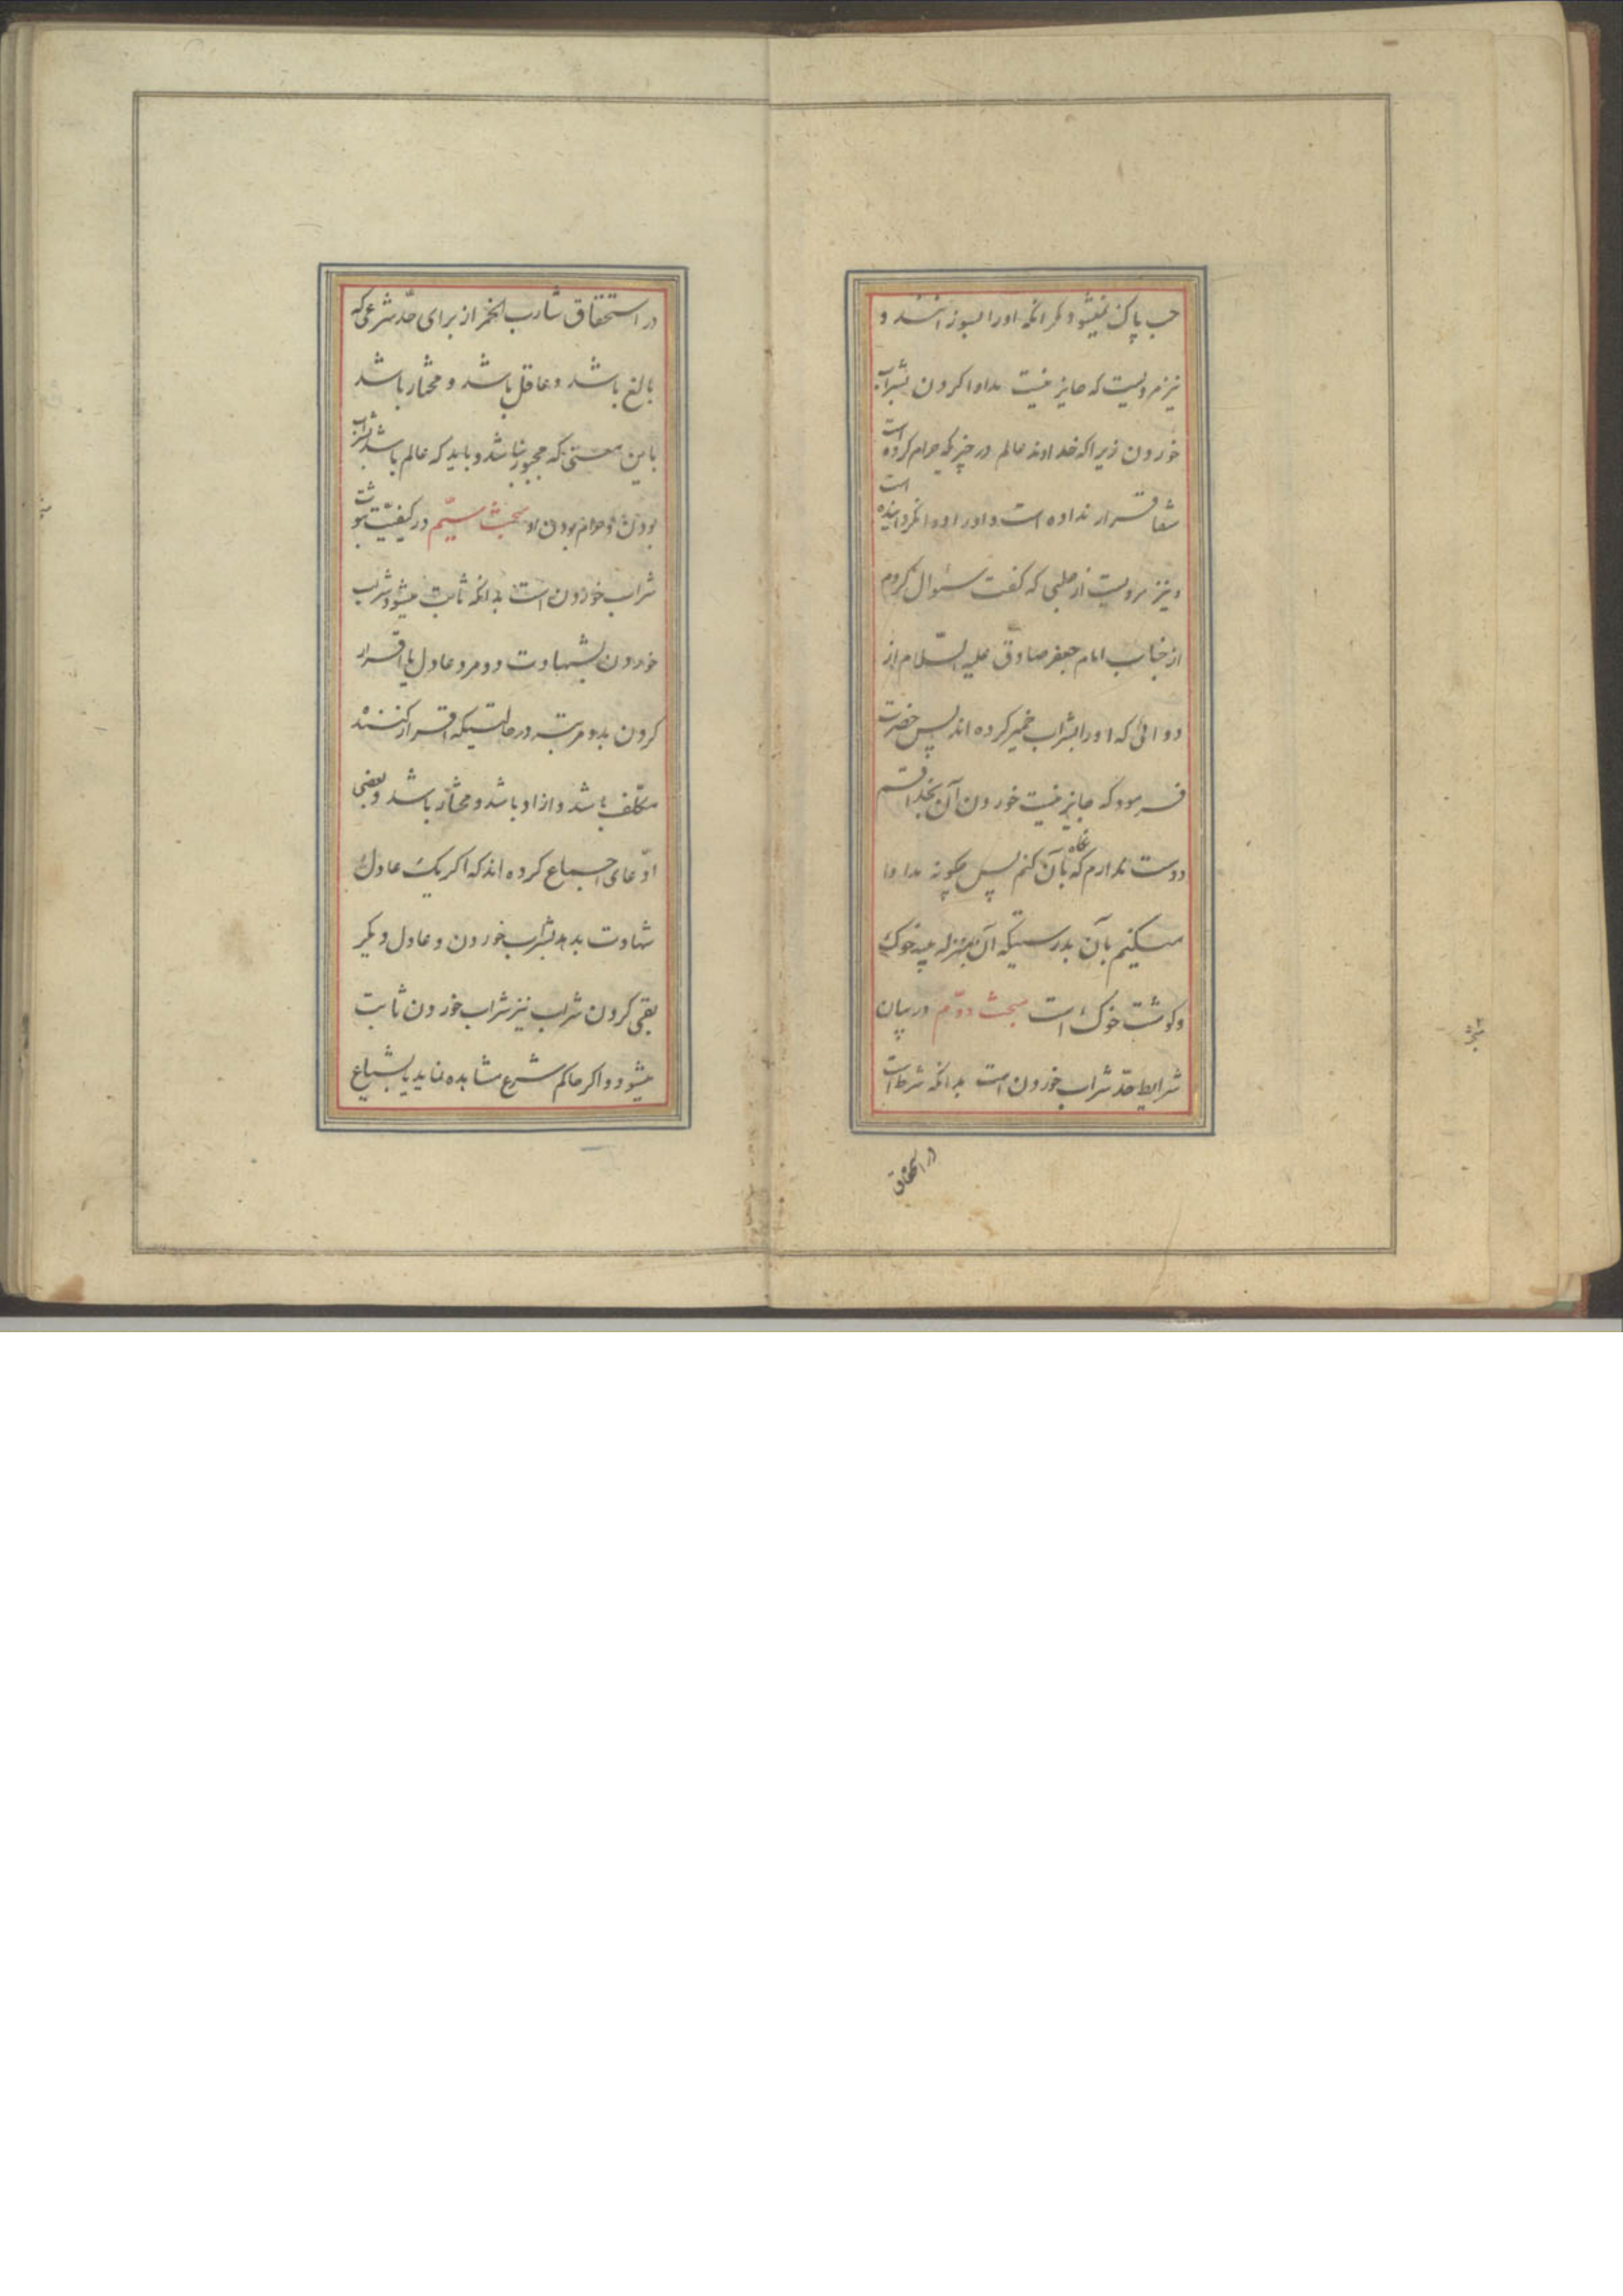 حب پاک نمیشود مکر انکه اورا بسوزانند و
نیز مرویست که جایز نیست مداوا کردن بشراب
خوردن زیرا که خداوند عالم در چیزیکه حرام کرده است
شفا قرار نداده است و اورا دوا نکردانیده است
و نیز مرویست از حلبی که کفت سئوال کردم
از جناب امام جعفر صادق علیه السّلام از
دوائی که اورا بشراب خمیر کرده اند پس حضرت
فرمود که جایز نیست خوردن آن بخدا قسم
دوست ندارم که نکاه بآن کنم پس چکونه مداوا
میکنیم بآن بدرستیکه آن بمنزله پیه خوک
و کوشت خوک است مبحث دوّم در بیان
شرایط حدّ شراب خوردن است بدانکه شرط است
در استحقاق
در استحقاق شارب الخمر از برای حدّ شرعی که
بالغ باشد و عاقل باشد و مختار باشد
باین معنی که مجبور نباشد و باید که عالم باشد بشراب
بودن و حرام بودن او مبحث سیّم در کیفیّت ثبوت
شراب خوردن است بدانکه ثابت میشود شراب
خوردن بشهادت دو مرد عادل یا اقرار
کردن بدو مرتبه در حالتیکه اقرار کننده
مکلّف باشد و ازاد باشد و مختار باشد و بعضی
ادّعای اجماع کرده اند که اکر یک عادل
شهادت بدهد بشراب خوردن و عادل دیکر
بقی کردن شراب نیز شراب خوردن ثابت
میشود و اکر حاکم شرع مشاهده نماید یا بشیاع